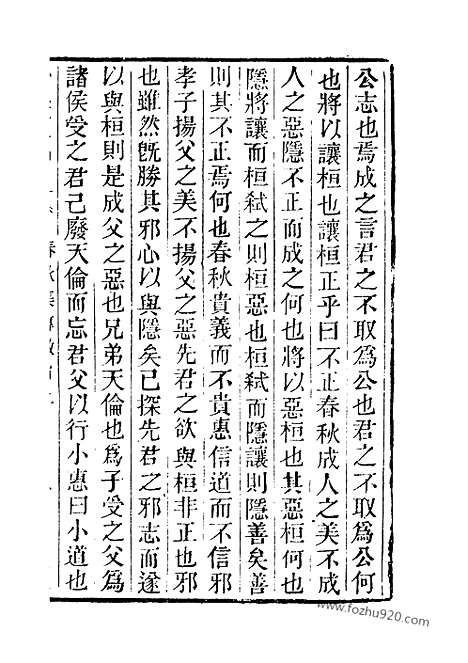 公志也焉成之言君之不取為公也君之不取為公何
也將以讓桓也讓桓正乎曰不正春秋成人之美不成
人之惡隱不正而成之何也將以惡桓也其惡桓何也
隱將讓而桓弒之則桓惡也桓弒而隱讓則隱善矣善
則其不正焉何也春秋貴義而不貴惠信道而不信邪
孝子揚父之美不揚父之惡先君之欲與桓非正也邪
也雖然旣勝其邪心以與隱矣已探先君之邪志而遂
以與桓則是成父之惡也兄弟天倫也為子受之父為
諸侯受之君己廢天倫而忘君父以行小惠曰小道也
www.fozhu920.com